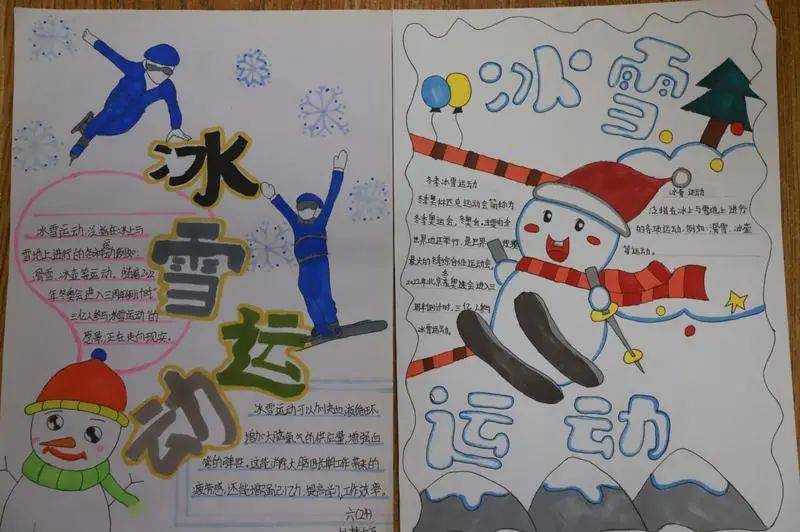 冰
雪
运
动
冰雪运动,泛指在冰上与
雪地上进行的各种运动例如:
滑雪、冰壶等运动。随着2022
年冬奥会进入三周年倒计时,
三亿人参与冰雪运动的
愿景,正在走向现实。
冰雪运动可以加快血液循环
增加大脑氧气的供应量,增强血
管的弹性,这能消除大脑长期工作带来的
疲劳感,还能增强记忆力,提高学习,工作效率。
六(2)
冰雪
冬季冰雪运动
冬季奥林匹克运动会简称为
冬季奥运会,冬奥会,
世界地区举行,是世界规模
最大的冬季综合性运动会,
2022年北京冬奥运会进入三
周年倒计时,三亿人参与
冰雪运动。
冰雪 运动
泛指在冰上与雪地上进行
的各项运动,例如:滑雪、冰壶
等运动。
运动